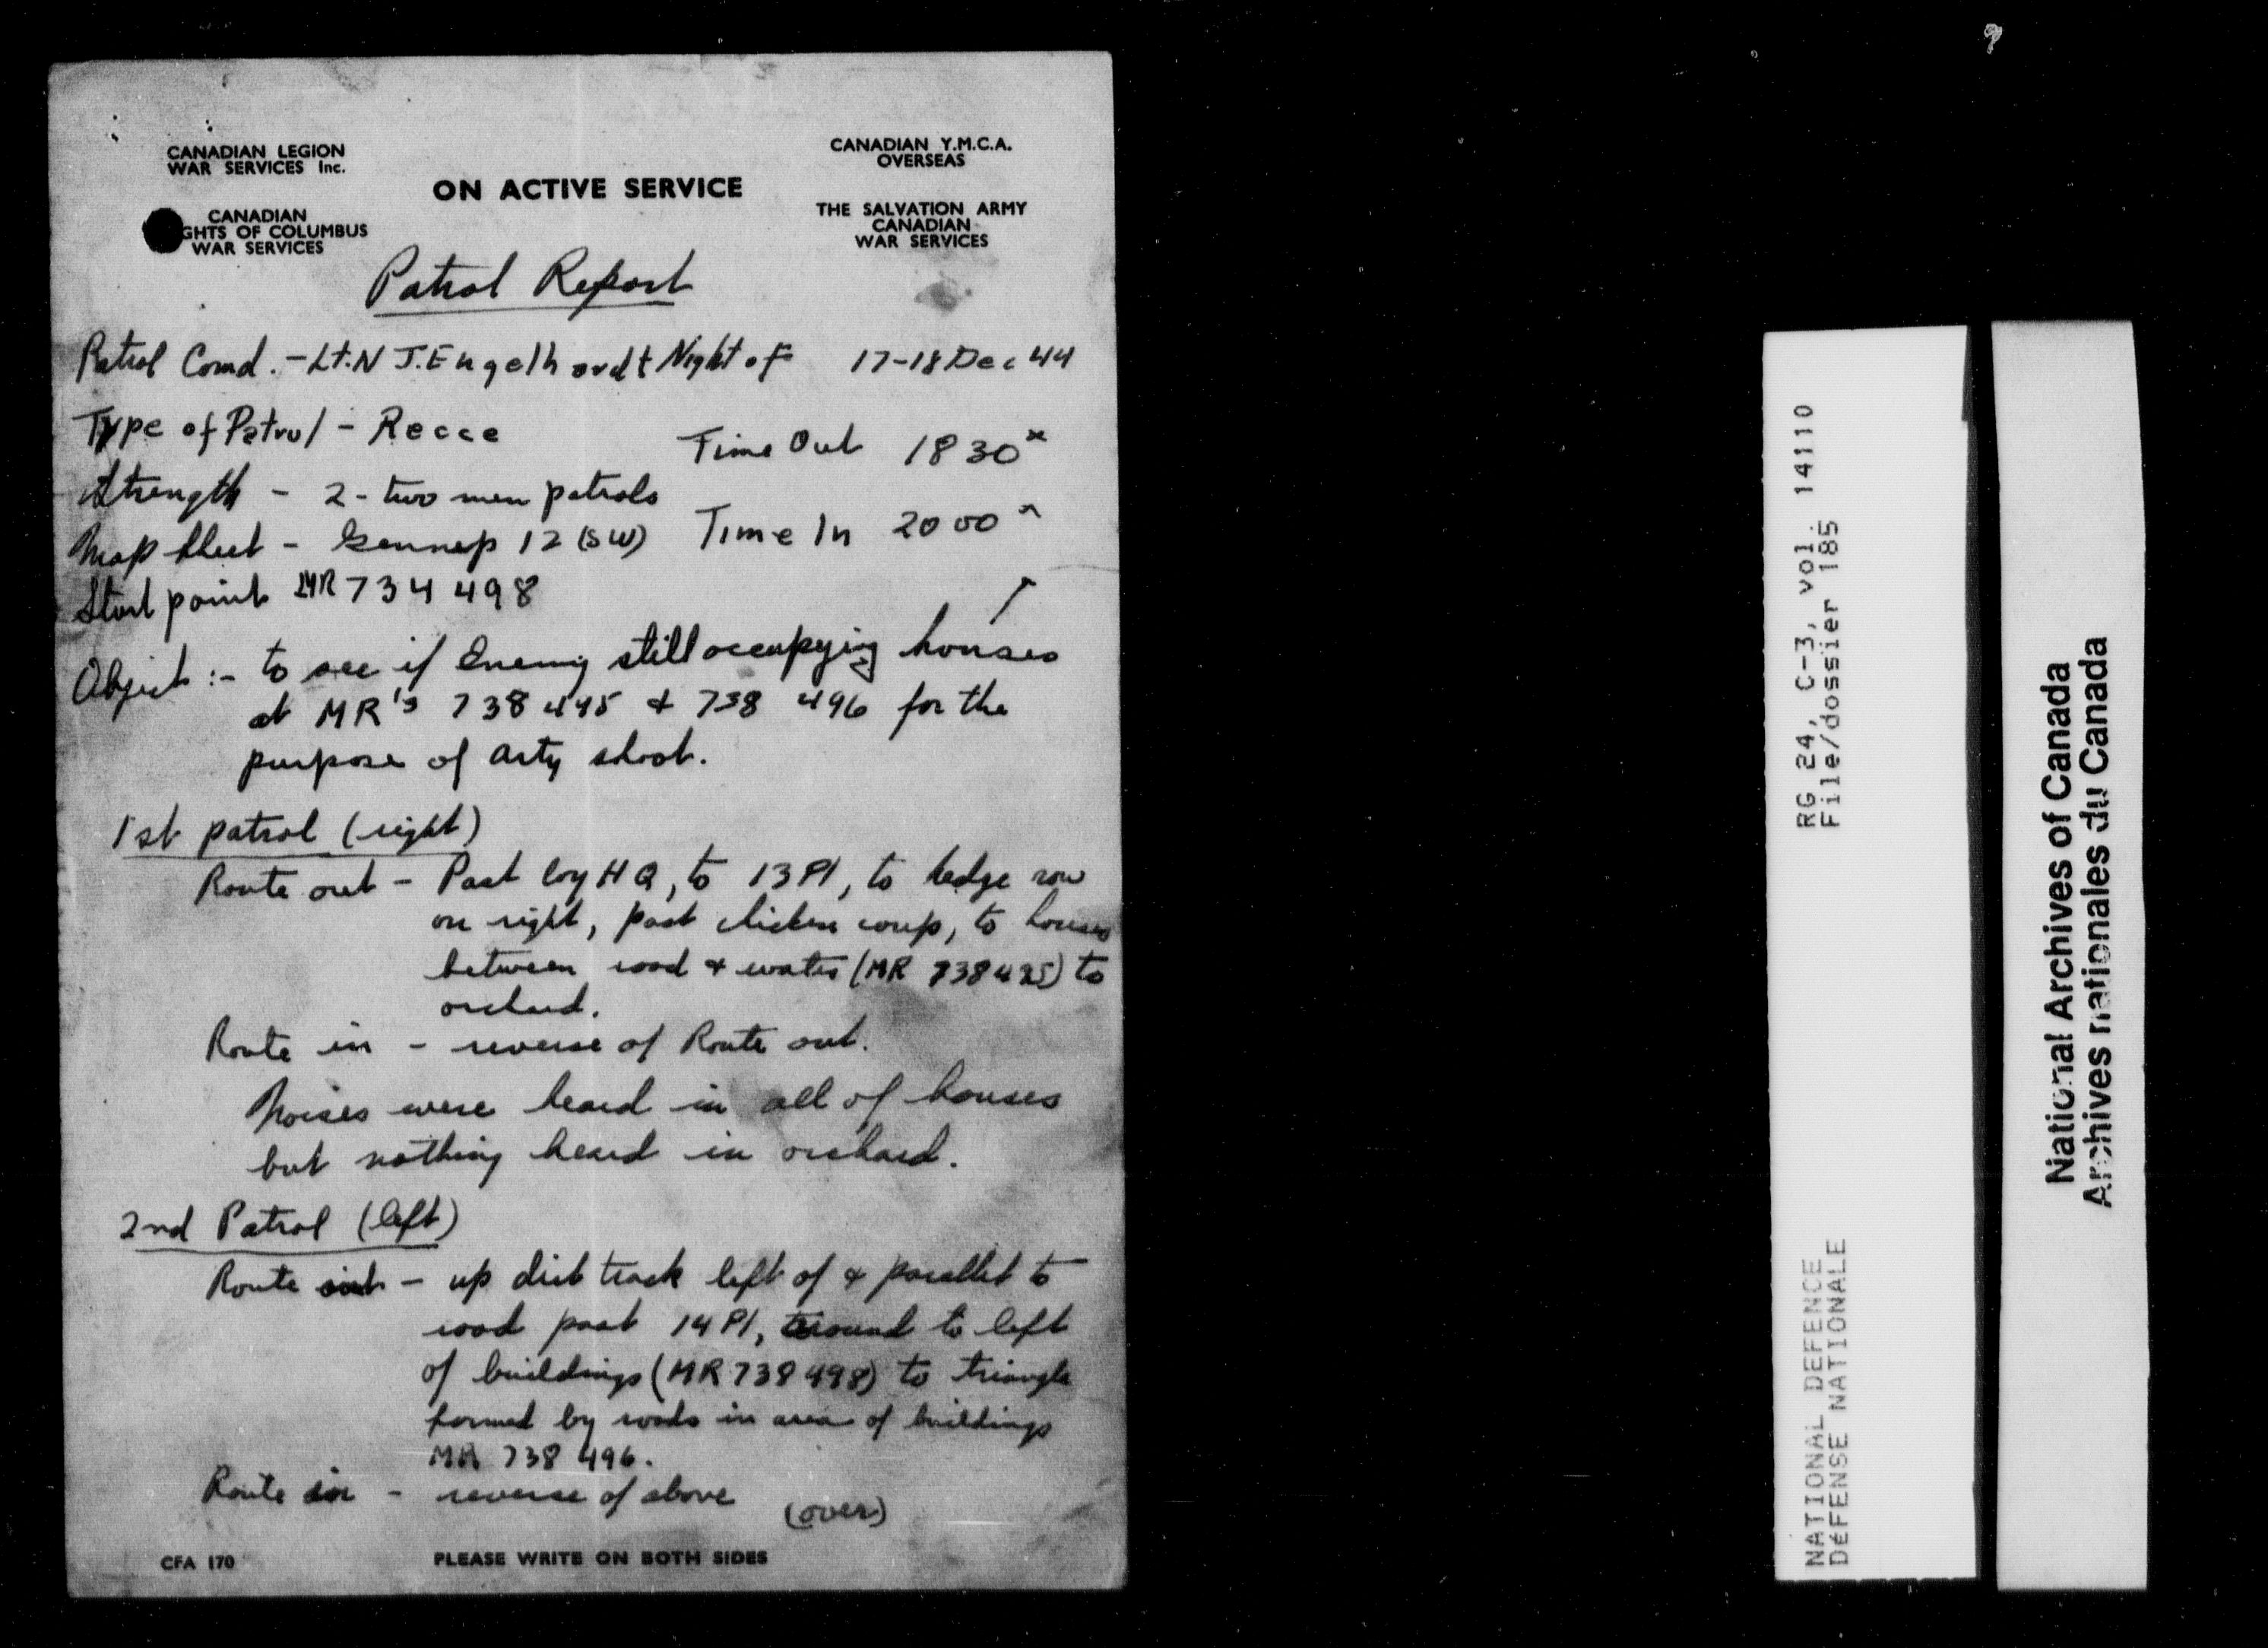 CANADIAN LEGION
WAR SERVICES Inc.
CANADIAN
GHTS OF COLUMBUS
WAR SERVICES
ON ACTIVE SERVICE
CANADIAN Y.M.C.A.
OVERSEAS
THE SALVATION ARMY
CANADIAN
WAR SERVICES
Patrol Report
Patrol Comd. - Lt. N J. Engelhardt Night of 17-18 Dec 44
Type of Patrol - Recce
Time Out 1830
Strength - 2 - two men patrols
Map Sheet - Gennep 12 (SW)
Time In 2000
Start point MR 734 498
Object :- to see if Enemy still occupying houses
at MR's 738 495 & 738 496 for the
purpose of arty shoot.
1st patrol (right)
Route out - Past Coy HQ, to 13 Pl, to hedge row
on right, past chicken coup, to houses
between road & water (MR 738 495) to
orchard.
Route in - reverse of Route out.
Noises were heard in all of houses
but nothing heard in orchard.
2nd Patrol (left)
Route out - up dirt track left of & parallel to
road past 14 Pl, around to left
of buildings (MR 738 498) to triangle
formed by roads in area of buildings
MR 738 496.
Route in - reverse of above
(over)
CFA 170
PLEASE WRITE ON BOTH SIDES
RG 24, C-3, vol. 14110
File/dossier 185
NATIONAL DEFENCE
DÉFENSE NATIONALE
National Archives of Canada
Archives nationales du Canada